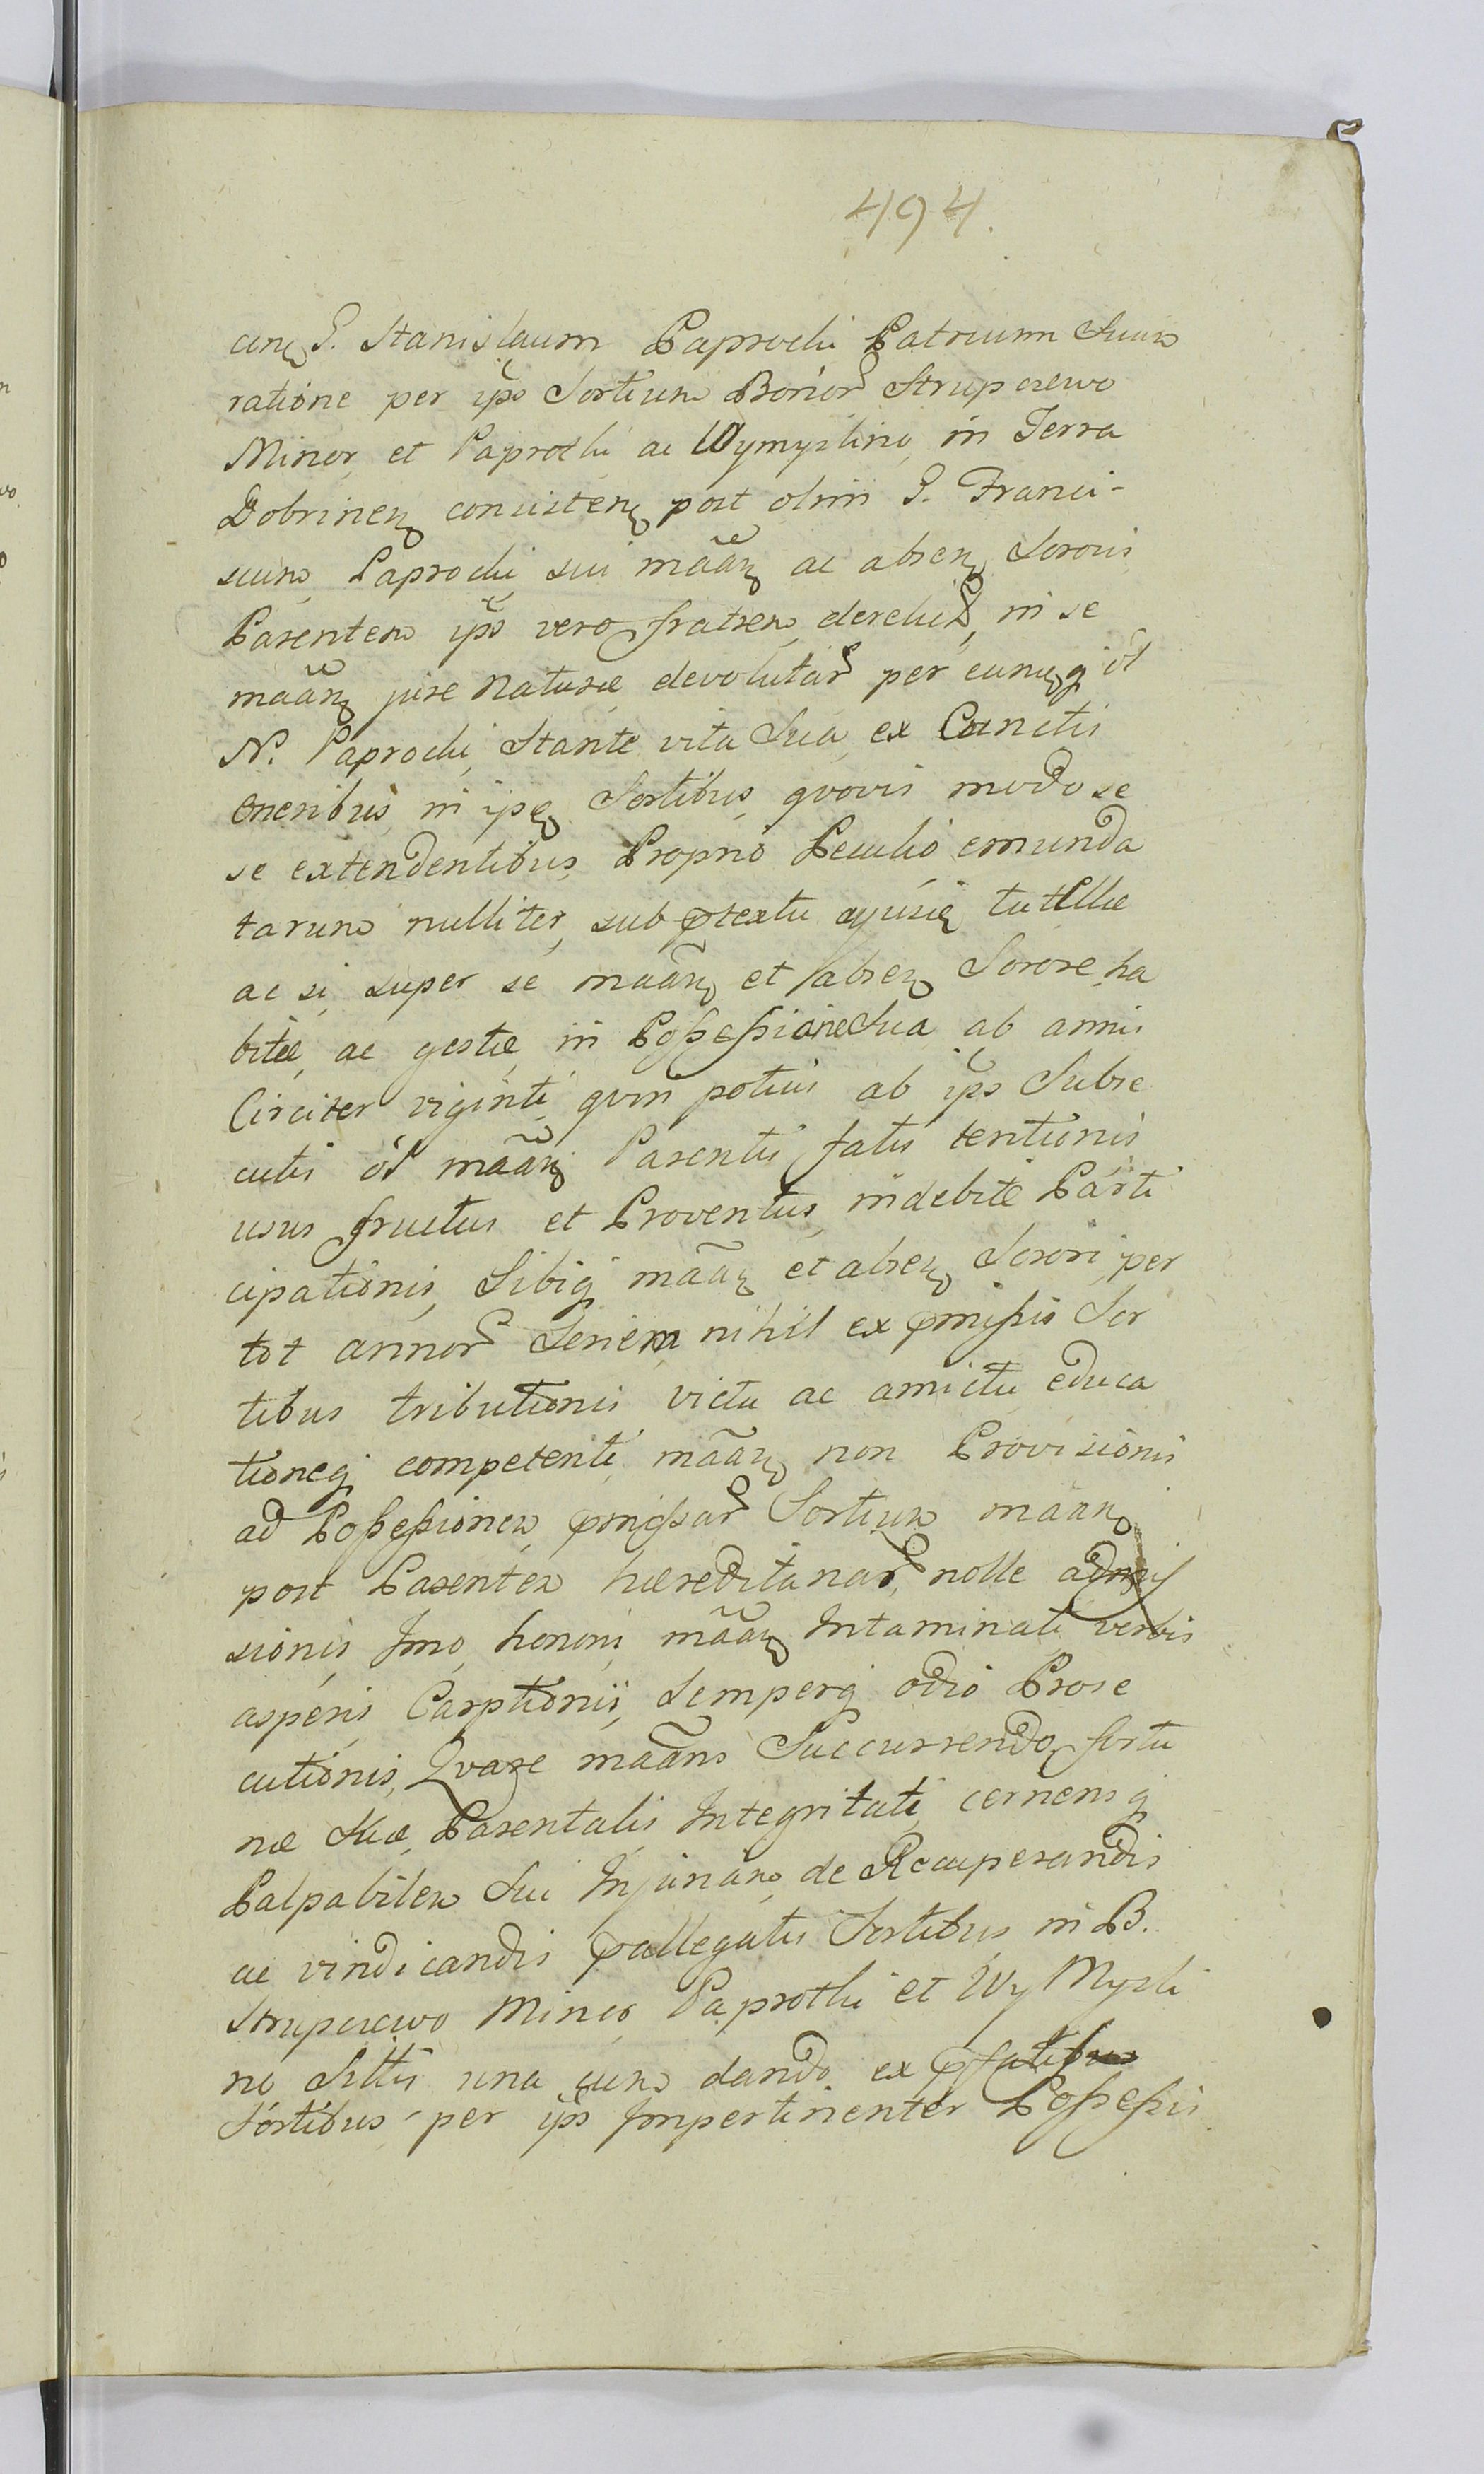 494.
conq G. Stanislaum Paprocki Patruum Suum
ratione per ips̃ Sortium Bonor Strupczewo
Minor, et Paprotki ac Wymyslino, in Terra
Dobrinen consisten post olim G. Franci-
scum Paprocki sui mãan ac absen Sororis
Parentem ips̃ vero fratrem derelict, in se
mãan jure naturæ devolutar per eunq ol
N. Paprocki Stante vita Sua, ex Cunctis
Oneribus in ipq Sortibus quovis modo se
se extendentibus Proprio Peculio emunda
tarum nulliter, sub ptextu cujusq tutellæ
ac si super se mãan et absen Sorore ha
bitæ, ac gestæ in Poßeßione Sua ab annis
Circiter viginti quin potius ab ips̃ Subse
cutis ol mãan Parentis fatis tentionis
usus fructus et Proventus indebite Parti
cipationis, Sibiq mãan et absen Sorori per
tot annor Seriem nihil ex pmißis Sor
tibus tributionis victu ac amictu educa
tioneq competenti mãan non Provisionis
ad Poßeßionem pmißar Sortium mãan
post Parentem hæreditariar, nolle admis
sionis Imo honori mãan Intaminati verbis
asperis Carptionis, Semperq odio Prose
cutionis, Qvare mãans Succurrendo fortu
næ Suæ Parentalis Integritati, cernensq
Palpabilem Sui Injuriam, de Recuperandis
ac vindicandis pallegatis Sortibus in B.
Strupczewo Minor, Paprotki et Wy Mysli
no Sittis una cum dando ex pfatis
Sortibus per ips̃ Impertinenter Poßeßis